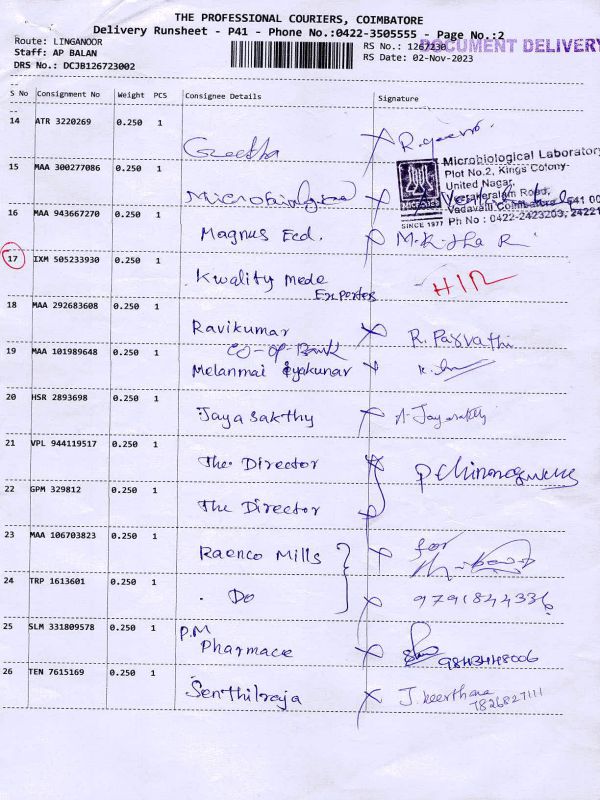 THE PROFESSIONAL COURIERS, COIMBATORE
Delivery Runsheet - P41 - Phone No.:0422-3505555 - Page No.:2
Route: LINGANOOR
Staff: AP BALAN
DRS No.: DCJB126723002
RS No.: 1267230
RS Date: 02-Nov-2023
DOCUMENT DELIVERY
S No Consignment No Weight PCS Consignee Details Signature
14 ATR 3220269 0.250 1 Geetha
15 MAA 300277086 0.250 1 Microbiological
Microbiological Laboratory
Plot No.2, Kings Colony-
United Nagar,
Veerakeralam Road,
Vadavalli Coimbatore
Ph No : 0422-2423203,
SINCE 1977
16 MAA 943667270 0.250 1 Magnus Ecd.
17 IXM 505233930 0.250 1 Kwality Mede
Exporters
18 MAA 292683608 0.250 1 Ravikumar R. Parvathi
19 MAA 101989648 0.250 1 CO-OP Bank
Melanmai Iyakunar
20 HSR 2893698 0.250 1 Jayasakthy Jayasakthy
21 VPL 944119517 0.250 1 The Director
22 GPM 329812 0.250 1 The Director
23 MAA 106703823 0.250 1 Raenco Mills for
24 TRP 1613601 0.250 1 Do 9791844336
25 SLM 331809578 0.250 1 P.M
Pharmace
26 TEN 7615169 0.250 1 Senthilraja J. Keerthana
7826827111